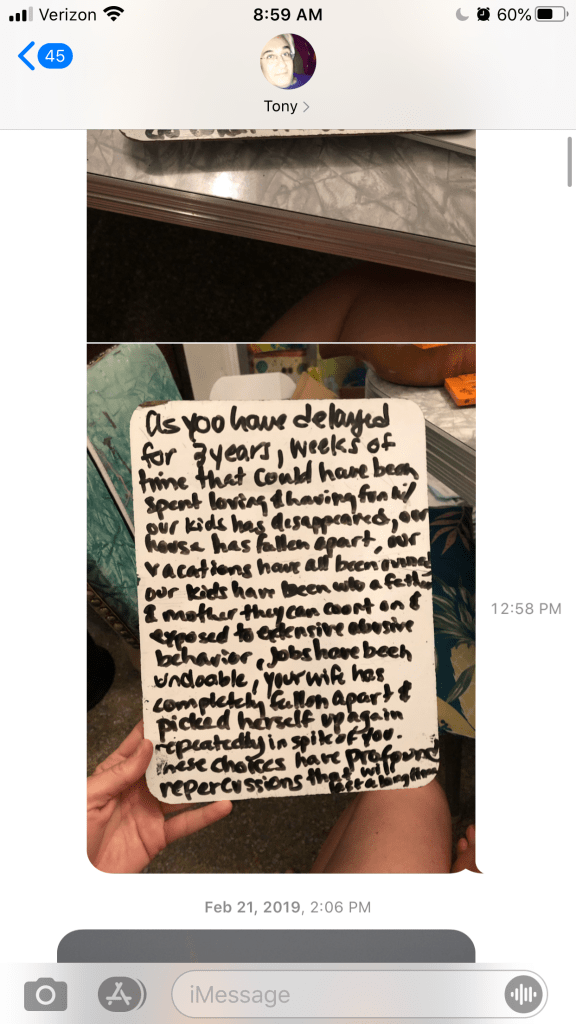 Verizon 8:59 AM 60%
45
Tony
as you have delayed
for 3 years, weeks of
time that could have been
spent loving & having fun w/
our kids has disappeared, our
house has fallen apart, our
vacations have all been
our kids have been w/o a father
& mother they can count on &
exposed to extensive abusive
behavior, jobs have been
undoable, your wife has
completely fallen apart &
picked herself up again
repeatedly in spite of you.
These choices have profound
repercussions that will
last a long time
12:58 PM
Feb 21, 2019, 2:06 PM
iMessage